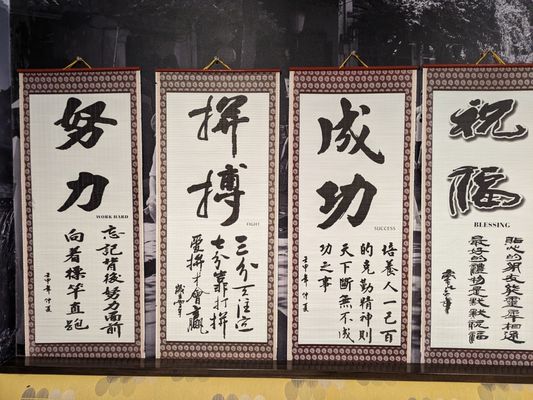 努力
WORK HARD
忘記背後努力面前
向着標竿直跑
壬申年仲夏
拼搏
FIGHT
三分天注定
七分靠打拼
愛拼才會贏
成功
SUCCESS
培養人一己百
的克勤精神則
天下斷無不成
功之事
壬申年仲夏
祝福
BLESSING
貼心的朋友能靈犀相通
最好的禮物是默默祝福